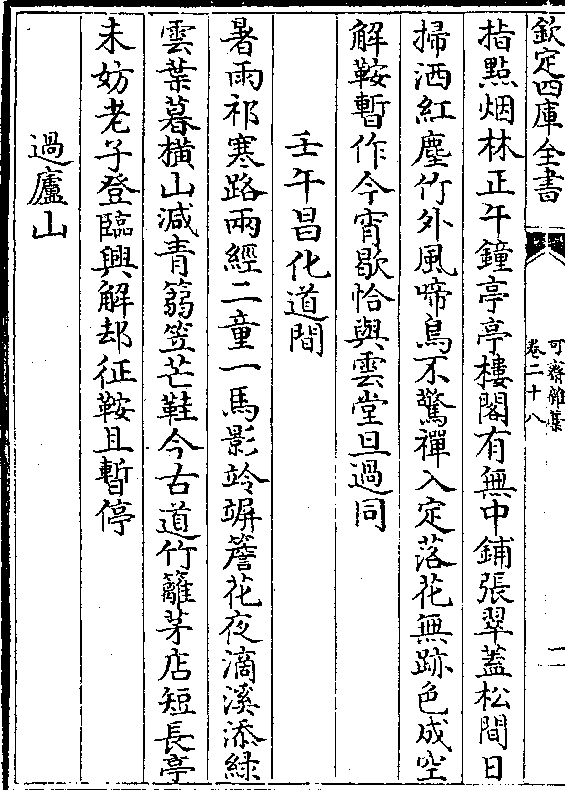 欽定四庫全書
可齋雜藁
卷二十八
二
指點烟林正午鐘亭亭樓閣有無中鋪張翠蓋松間日
掃洒紅塵竹外風啼鳥不驚禪入定落花無跡色成空
解鞍暫作今宵歇恰與雲堂旦過同
壬午昌化道間
暑雨祁寒路兩經二童一馬影竛竮簷花夜滴溪添緑
雲葉暮橫山減青篛笠芒鞋今古道竹籬茅店短長亭
未妨老子登臨興解却征鞍且暫停
過廬山